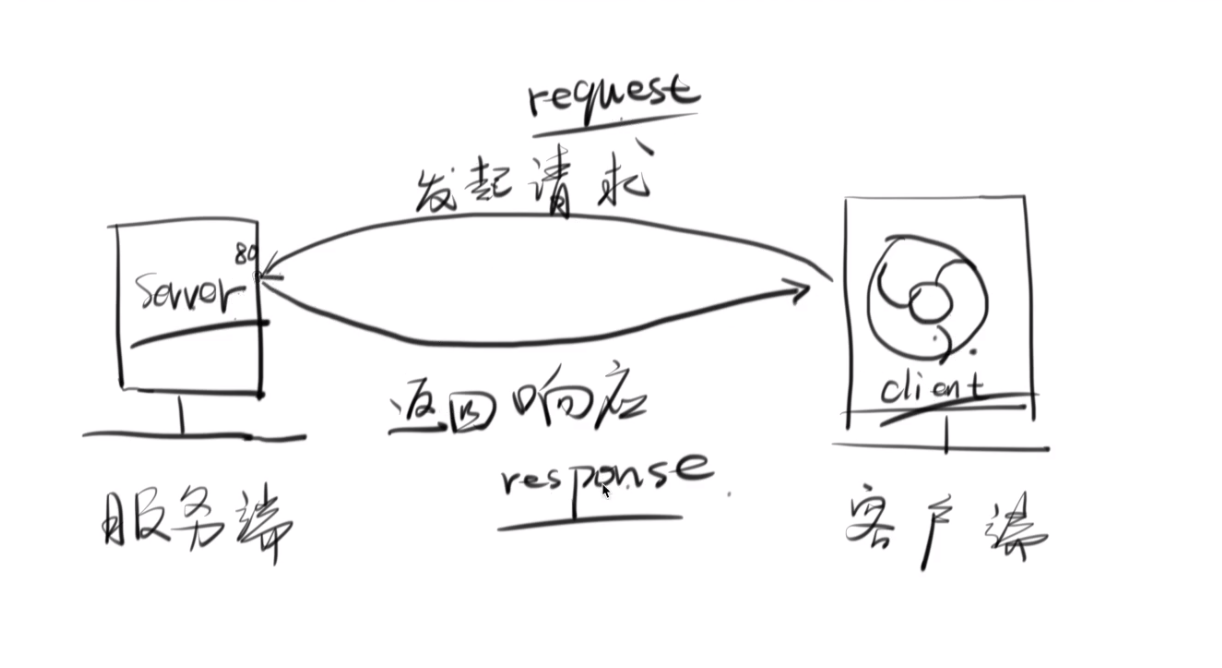 request
发起请求
80
Server
client
返回响应
response
服务端
客户端